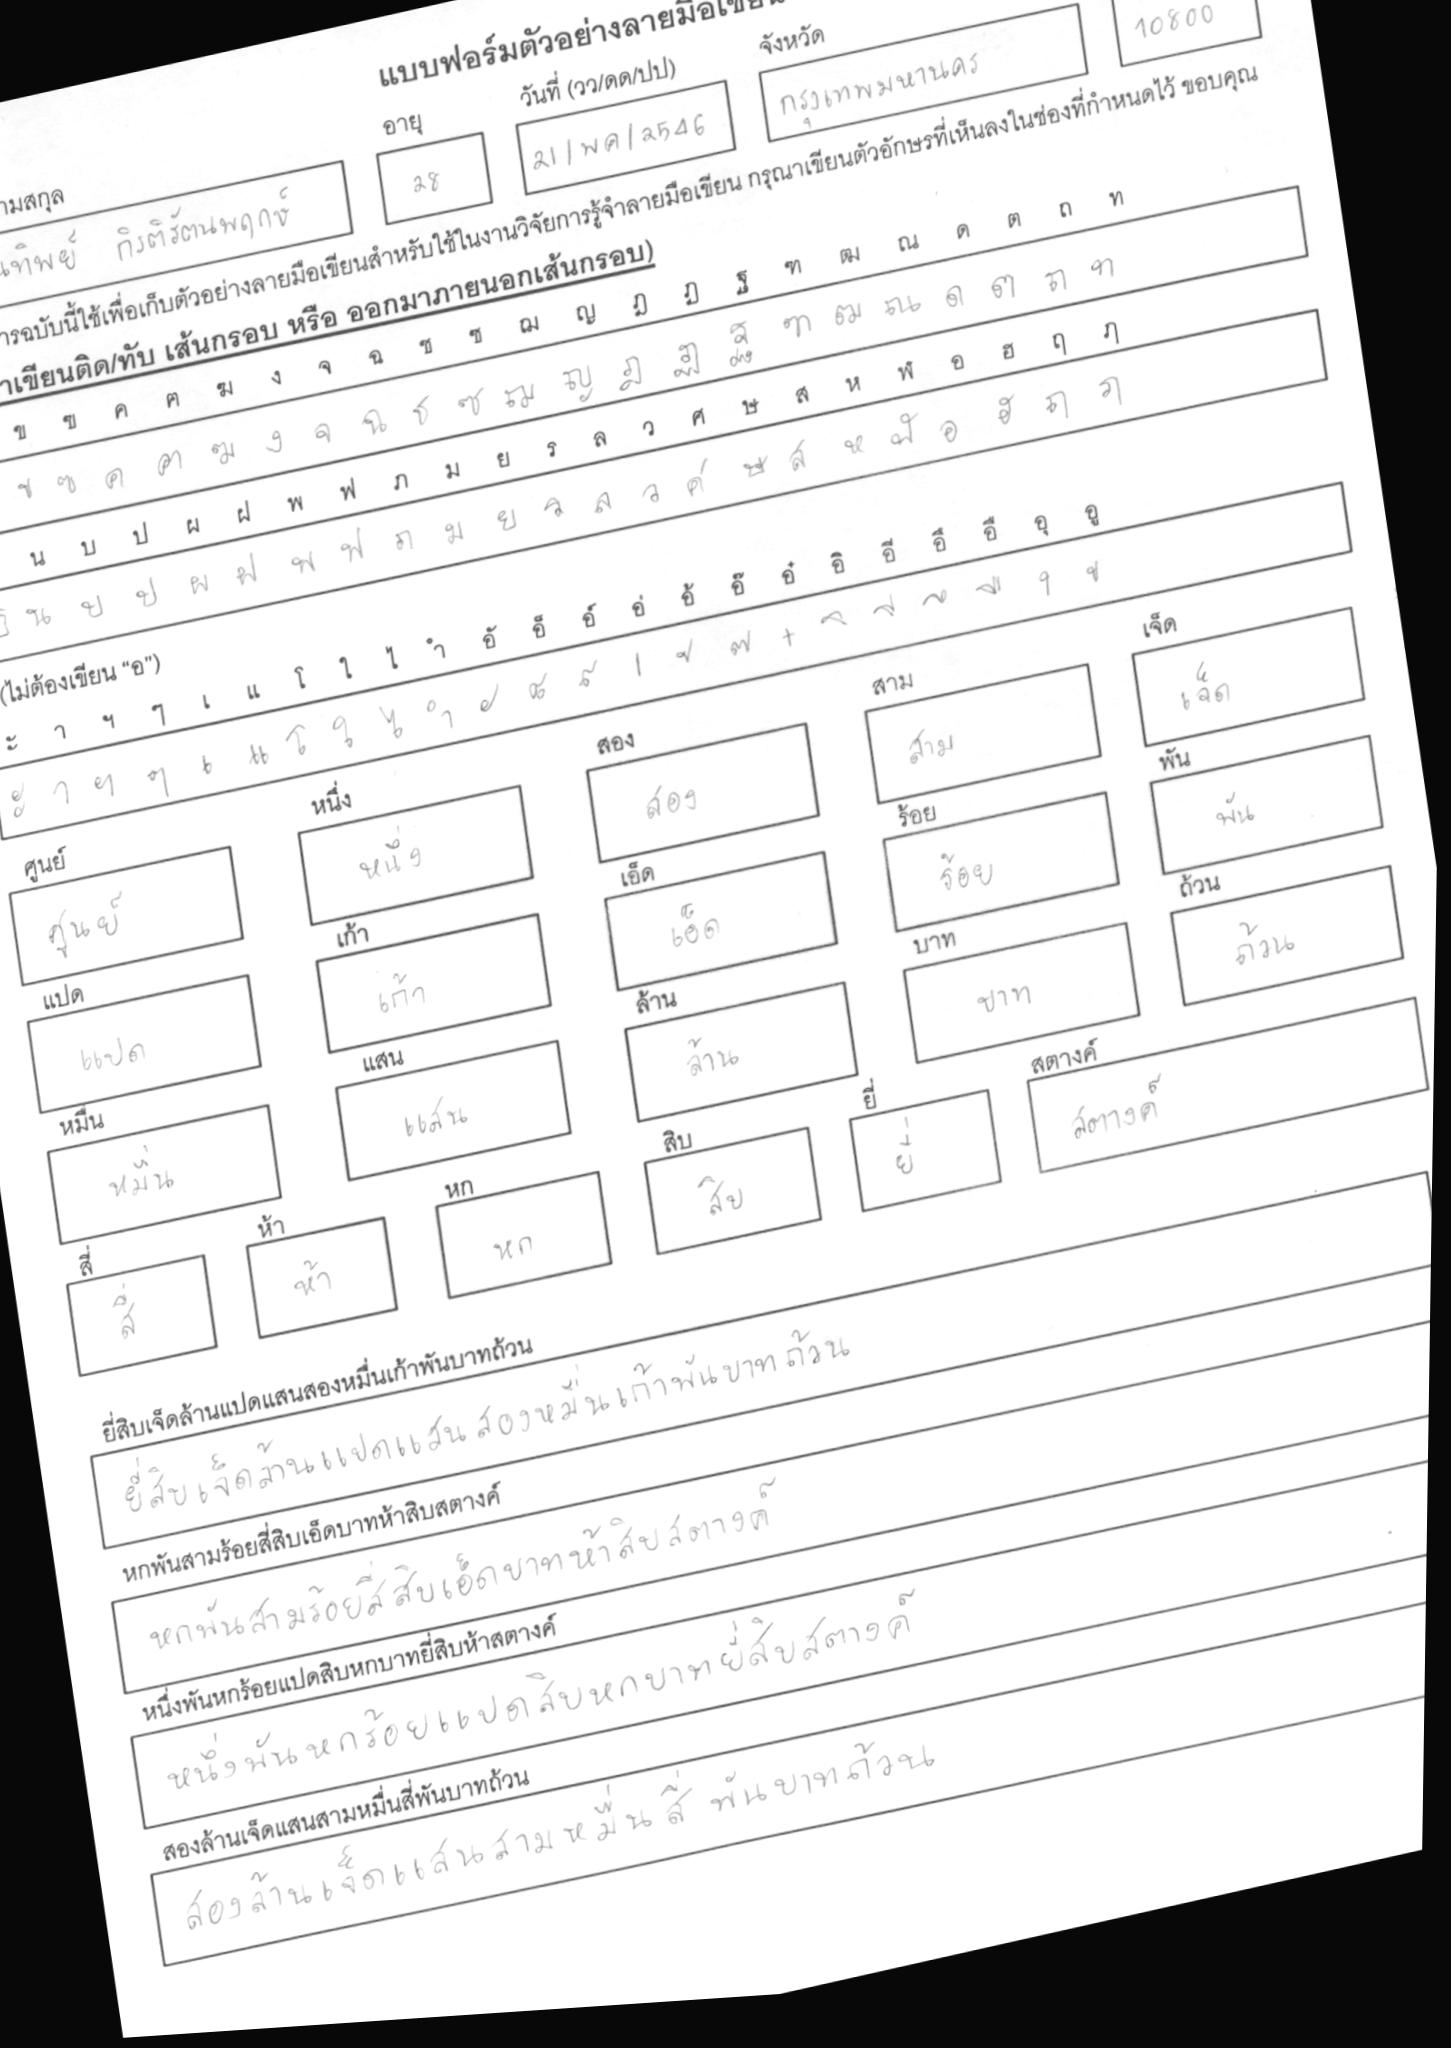 แบบฟอร์มตัวอย่างลายมือเขียน
อายุ วันที่ (วว/ดด/ปป) จังหวัด
กิรติรัตนพฤกษ์ 28 21/พค/2546 กรุงเทพมหานคร 10800
ใช้เพื่อเก็บตัวอย่างลายมือเขียนสำหรับใช้ในงานวิจัยการรู้จำลายมือเขียน กรุณาเขียนตัวอักษรที่เห็นลงในช่องที่กำหนดไว้ ขอบคุณ
เขียนติด/ทับ เส้นกรอบ หรือ ออกมาภายนอกเส้นกรอบ)
ข ฃ ค ฅ ฆ ง จ ฉ ช ซ ฌ ญ ฎ ฏ ฐ ฑ ฒ ณ ด ต ถ ท
ข ฃ ค ฅ ฆ ง จ ฉ ช ซ ฌ ญ ฎ ฏ ฐ ฑ ฒ ณ ด ต ถ ท
น บ ป ผ ฝ พ ฟ ภ ม ย ร ล ว ศ ษ ส ห ฬ อ ฮ ฤ ฦ
น บ ป ผ ฝ พ ฟ ภ ม ย ร ล ว ศ ษ ส ห ฬ อ ฮ ฤ ฦ
(ไม่ต้องเขียน “อ”)
ะ า ฯ ๆ เ แ โ ใ ไ ำ อั อ็ อ์ อ่ อ้ อ๊ อ๋ อิ อี อึ อื อุ อู
ะ า ฯ ๆ เ แ โ ใ ไ ำ ั ็ ์ ่ ้ ๊ ๋ ิ ี ึ ื ุ ู
ศูนย์ หนึ่ง สอง สาม เจ็ด
ศูนย์ หนึ่ง สอง สาม เจ็ด
แปด เก้า เอ็ด ร้อย พัน
แปด เก้า เอ็ด ร้อย พัน
หมื่น แสน ล้าน บาท ถ้วน
หมื่น แสน ล้าน บาท ถ้วน
สี่ ห้า หก สิบ ยี่ สตางค์
สี่ ห้า หก สิบ ยี่ สตางค์
ยี่สิบเจ็ดล้านแปดแสนสองหมื่นเก้าพันบาทถ้วน
ยี่สิบเจ็ดล้านแปดแสนสองหมื่นเก้าพันบาทถ้วน
หกพันสามร้อยสี่สิบเอ็ดบาทห้าสิบสตางค์
หกพันสามร้อยสี่สิบเอ็ดบาทห้าสิบสตางค์
หนึ่งพันหกร้อยแปดสิบหกบาทยี่สิบห้าสตางค์
หนึ่งพันหกร้อยแปดสิบหกบาทยี่สิบสตางค์
สองล้านเจ็ดแสนสามหมื่นสี่พันบาทถ้วน
สองล้านเจ็ดแสนสามหมื่นสี่พันบาทถ้วน